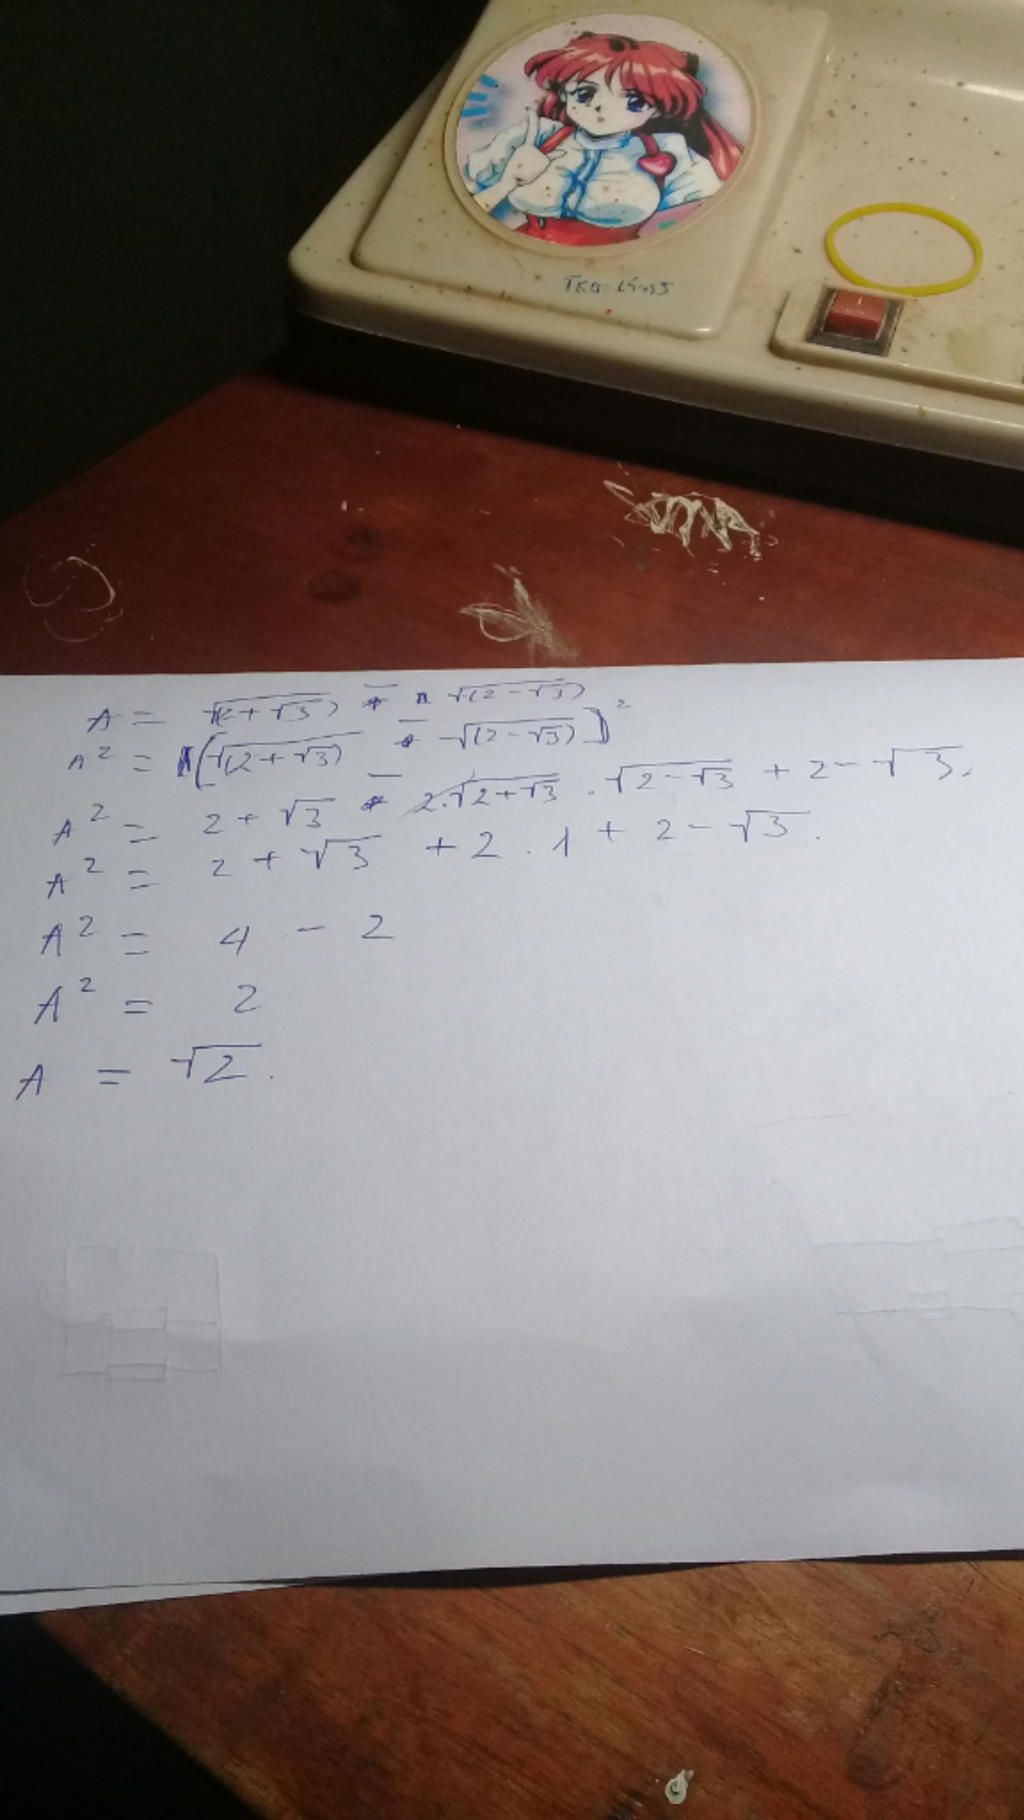 A = √(2+√3) - √(2-√3)
A² = [√(2+√3) - √(2-√3)]²
A² = 2 + √3 - 2.√2+√3 . √2-√3 + 2 - √3.
A² = 2 + √3 + 2 . 1 + 2 - √3.
A² = 4 - 2
A² = 2
A = √2.